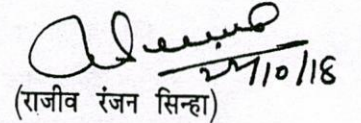 24/10/18
(राजीव रंजन सिन्हा)